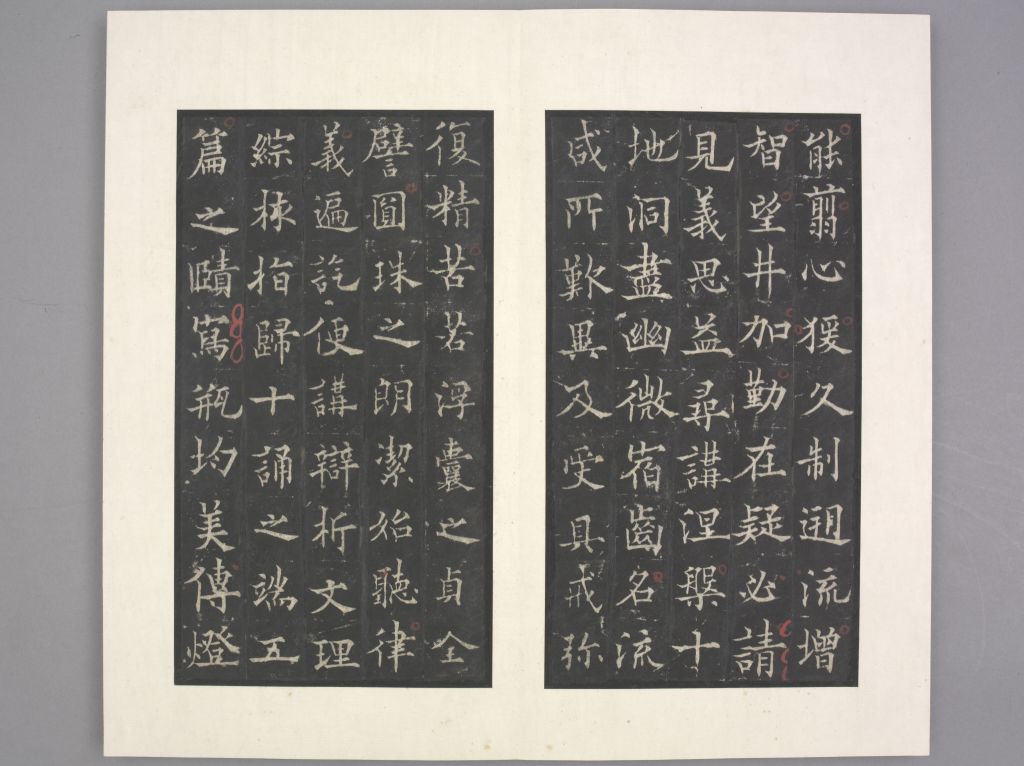 能翦心猨久制遡流增
智望井加勤在疑必請
見義思益尋講涅槃十
地洞盡幽微宿齒名流
咸所歎異及受具戒弥
復精苦若浮囊之貞全
譬圓珠之朗潔始聽律
義遍訖便講辯析文理
綜栐指歸十誦之端五
篇之賾寫瓶均美傳燈